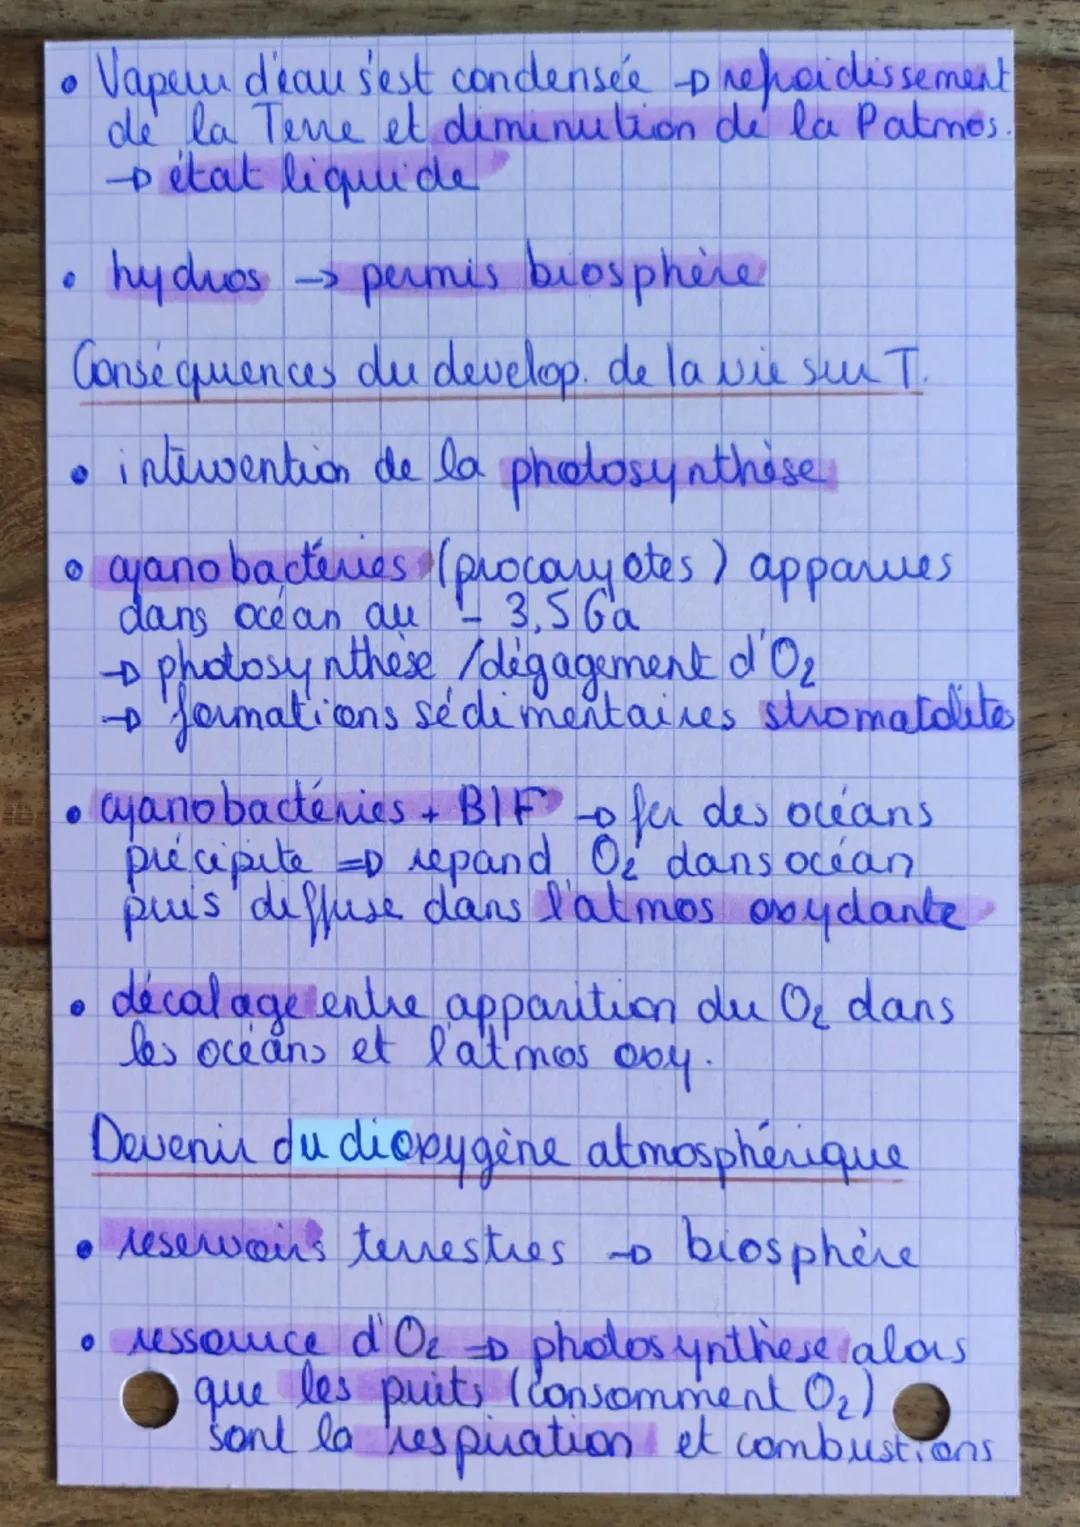 • Vapeur d'eau s'est condensée → refroidissement
de la Terre et diminution de la Patmos.
→ état liquide
• hydros → permis biosphère
Conséquences du develop. de la vie sur T.
• intervention de la photosynthèse
• cyanobactéries (procaryotes) apparues
dans océan au - 3,5 Ga
→ photosynthèse / dégagement d'O₂
→ formations sédimentaires stromatolites
• cyanobactéries + BIF → fer des océans
précipite ⇒ repand O₂ dans océan
puis diffuse dans l'atmos oxydante
• décalage entre apparition du O₂ dans
les océans et l'atmos oxy.
Devenir du dioxygène atmosphérique
• reservoirs terrestres → biosphère
• ressource d'O₂ ⇒ photosynthèse alors
que les puits (consomment O₂)
sont la respiration et combustions